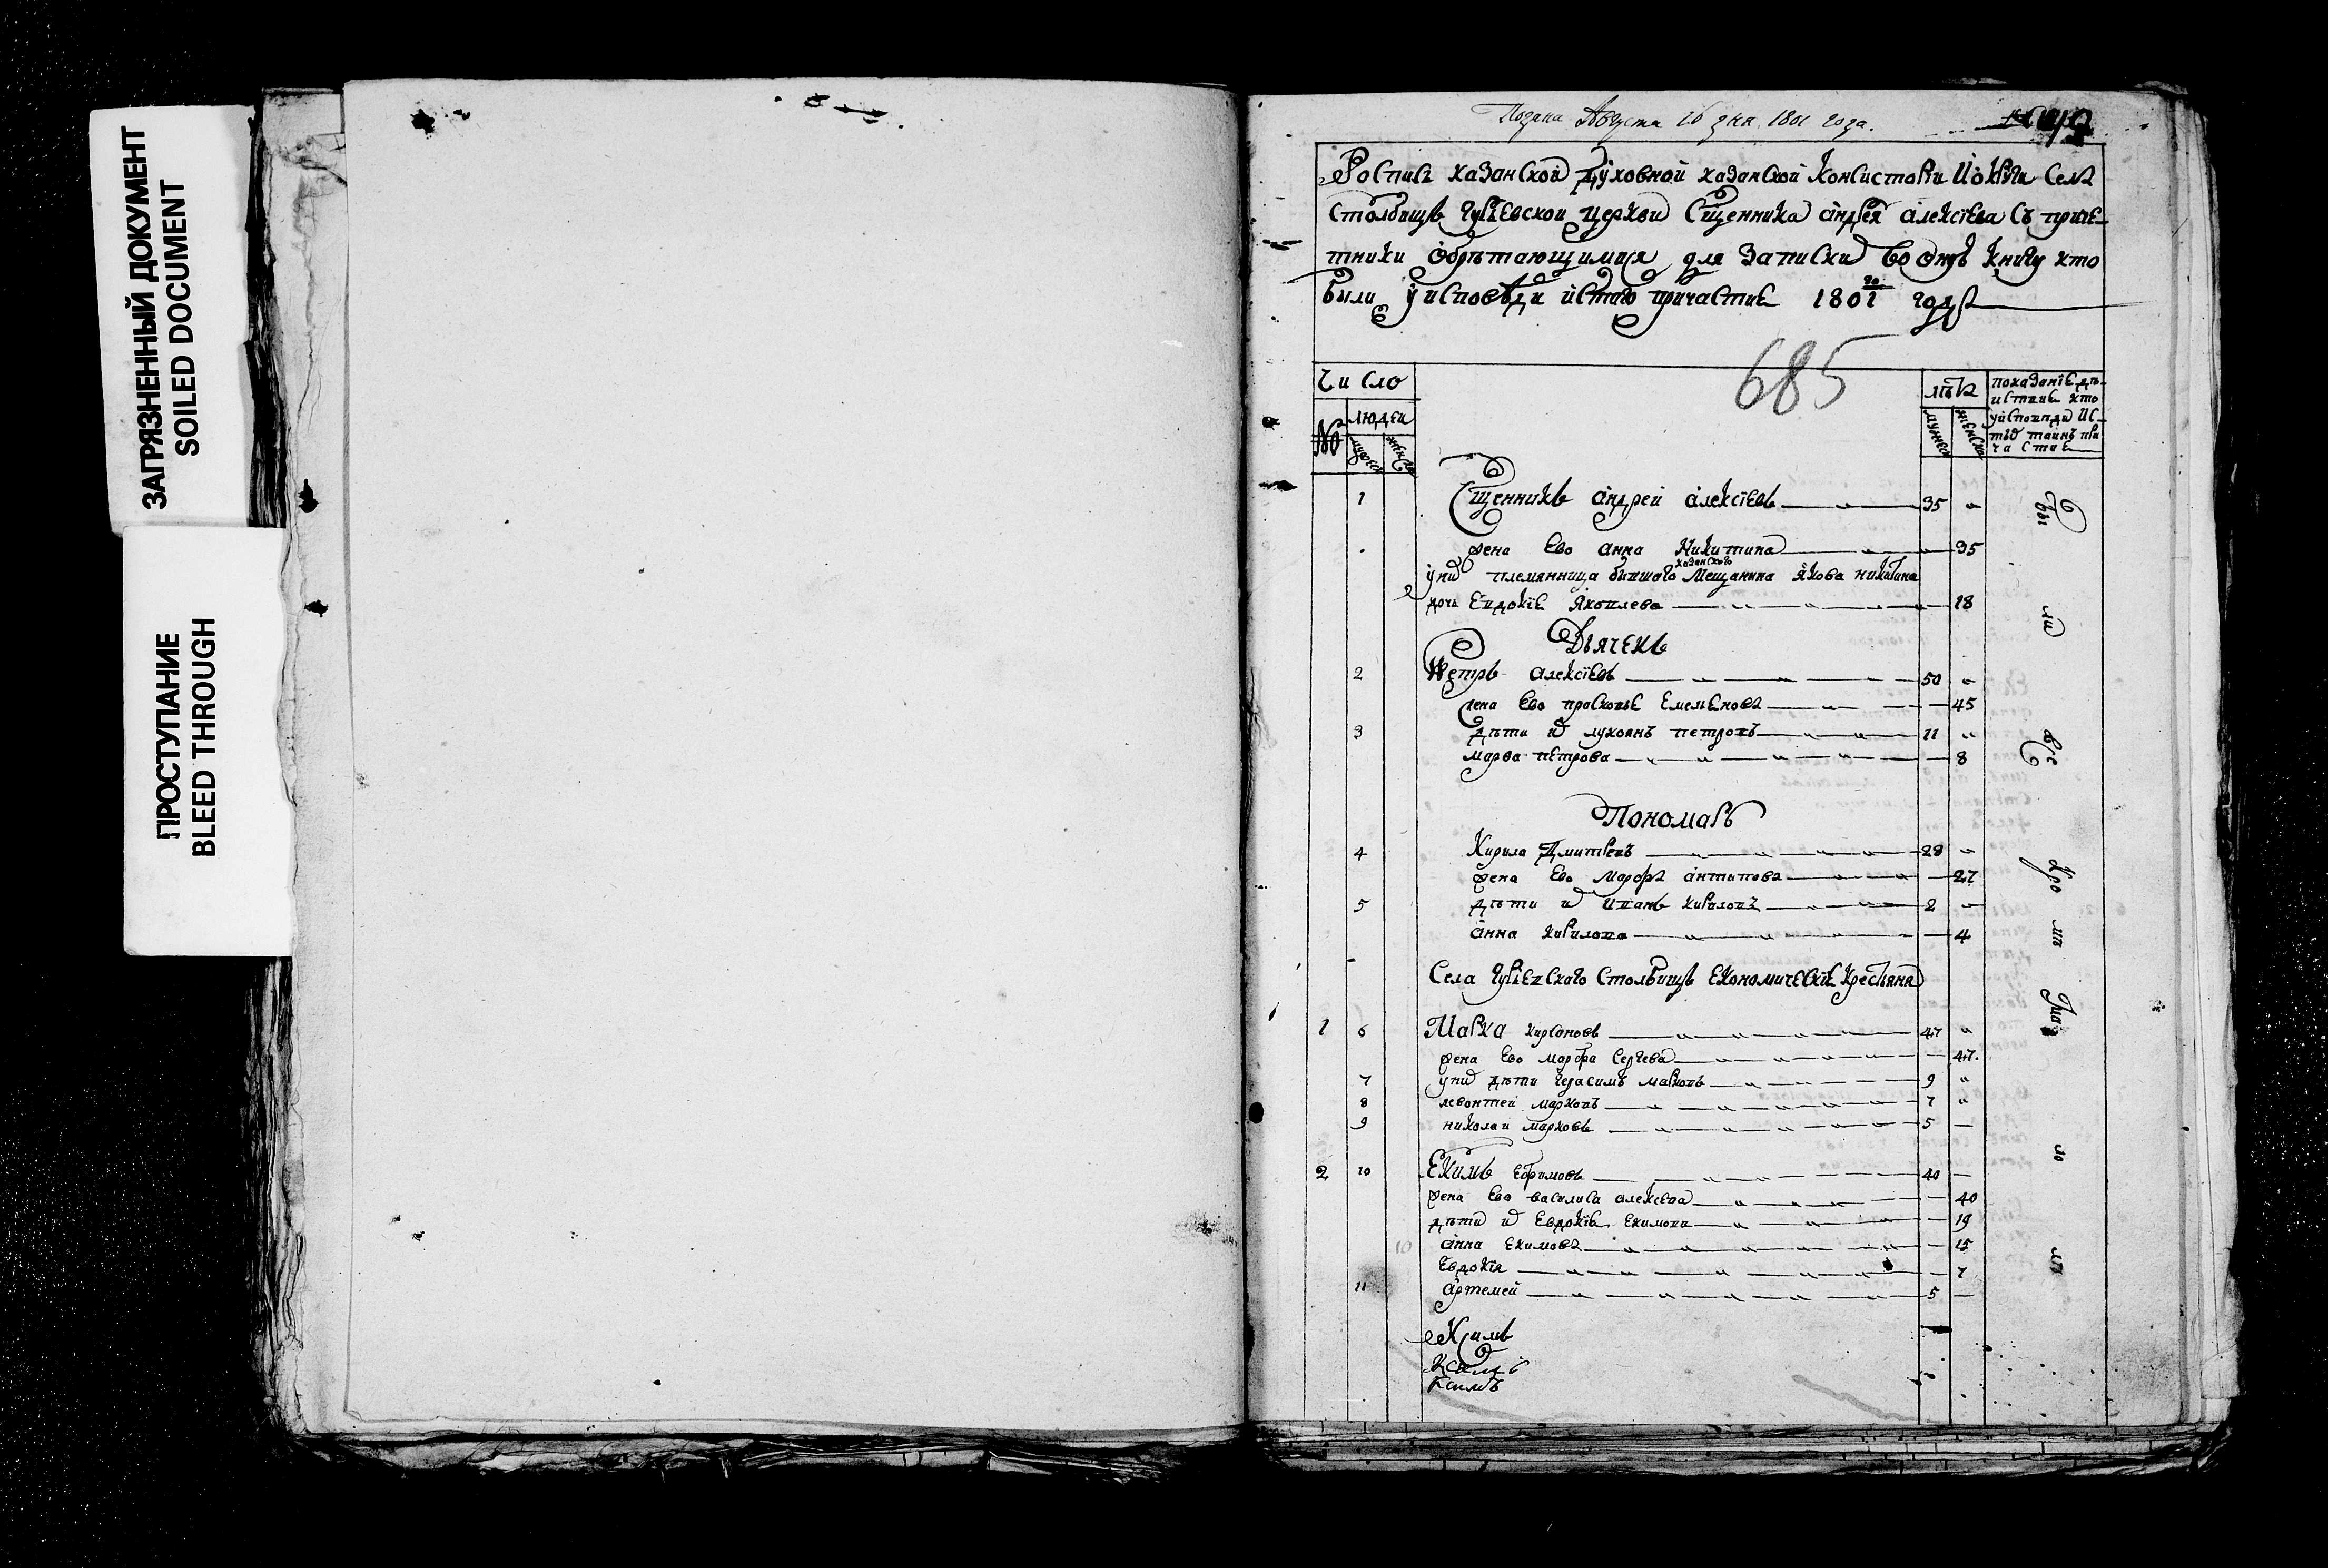 ЗАГРЯЗНЕННЫЙ ДОКУМЕНТ
SOILED DOCUMENT
ПРОСТУПАНИЕ
BLEED THROUGH
Подана Августа 16 дня 1801 года.
Роспись казанской Духовной казанской Консистори Села
Столбищъ гурьевской церкви Сщенника андрея алексіева Съ приче-
тники обрѣтающимися для Записки во оную книгу кто
были у исповѣди и стаго причастие 1801 го годѣ
685
Число
№
людей
мужеск
женска
лѣта
мужеск
женска
показание дѣ-
иствие кто
у исповѣди и С-
тыхъ таинъ при
частие
1 Сщенникъ андрей алексіевъ 35
жена Ево анна Никитина 35
у них племянница бывшаго казанскаго Мещанина якова никитина
дочь Евдокіе яковлева 18
Дьячекъ
2 Петръ алексіевъ 50
жена Ево прасковье Емельенова 45
3 дѣти их лукоянъ петровъ 11
марва петрова 8
Пономарь
4 Кирила Дмитревъ 28
жена Ево марфа антипова 27
5 дѣти их иванъ кириловъ 2
анна кирилова 4
Села гурьевскаго Столбищъ Економическіе Крестьяня
1 6 Марка кирсоновъ 47
жена Ево марфа Сергева 47.
7 у них дѣти герасимъ марковъ 9
8 левонтей марковъ 7
9 николаи марковъ 5
2 10 Екимъ Ефимовъ 40
жена Ево василиса алексева 40
дѣти их Евдокіе Екимова 19
анна Екимова 15
Евдокія 7
11 артемей 5
бы
ли
все
кро
мѣ
ло
лѣ